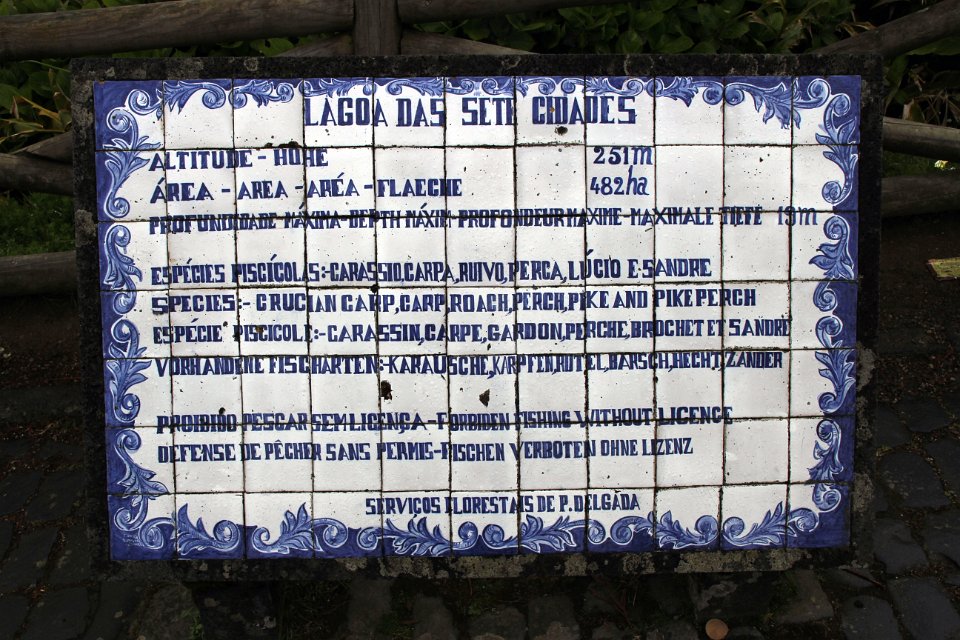 LAGOA DAS SETE CIDADES
ALTITUDE - HÖHE 251m
ÁREA - AREA - ARÉA - FLAECHE 482ha
PROFUNDIDADE MÁXIMA-DEPTH MÁXIM-PROFONDEUR MAXIME-MAXIMALE TIEFE 19m
ESPÉCIES PISCÍCOLAS:-CARASSIO,CARPA,RUIVO,PERCA,LÚCIO E SANDRE
SPECIES:- CRUCIAN CARP,CARP,ROACH,PERCH,PIKE AND PIKEPERCH
ESPÉCIE PISCICOLE:-CARASSIN,CARPE,GARDON,PERCHE,BROCHET ET SANDRE
VORHANDENE FISCHARTEN:-KARAUSCHE,KARPFEN,ROTEL,BARSCH,HECHT,ZANDER
PROIBIDO PESCAR SEM LICENÇA-FORBIDEN FISHING WITHOUT LICENCE
DEFENSE DE PÊCHER SANS PERMIS-FISCHEN VERBOTEN OHNE LIZENZ
SERVIÇOS FLORESTAIS DE P. DELGADA